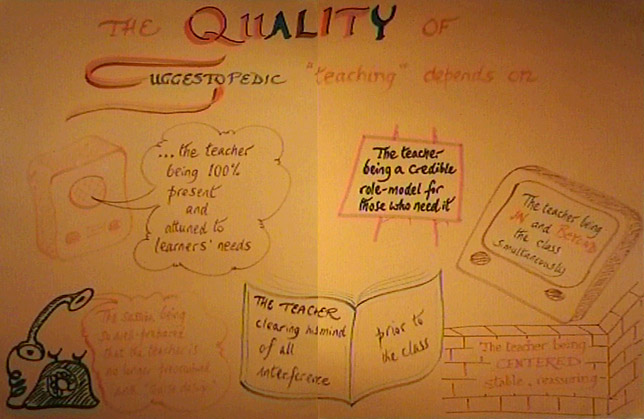 THE QUALITY OF
SUGGESTOPEDIC "teaching" depends on
... the teacher
being 100%
present
and
attuned to
learners' needs
The teacher
being a credible
role-model for
those who need it
The teacher being
IN and BEYOND
the class
simultaneously
The session being
so well-prepared
that the teacher is
no longer preoccupied
with
THE TEACHER
clearing his mind
of all
interference
prior to
the class
The teacher being
CENTERED
stable, reassuring